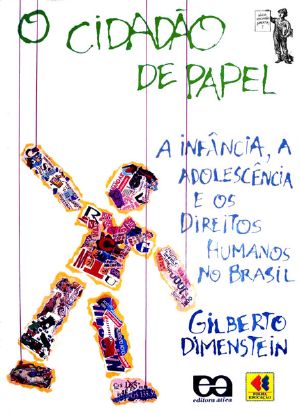 O CIDADÃO
DE PAPEL
A INFÂNCIA, A
ADOLESCÊNCIA
E OS
DIREITOS
HUMANOS
NO BRASIL
GILBERTO
DIMENSTEIN
editora ática
FOLHA
EDUCAÇÃO